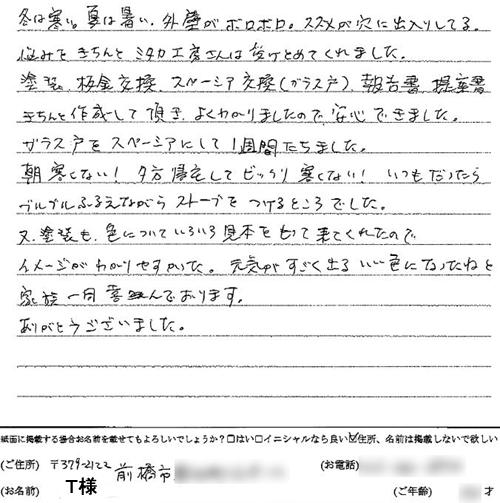 冬は寒い。夏は暑い。外壁がボロボロ。スズメが穴に出入りしてる。
悩みをきちんとミタカ工房さんは受けとめてくれました。
塗装、板金交換、スペーシア交換(ガラス戸)、報告書、提案書
きちんと作成して頂き、よくわかりましたので、安心できました。
ガラス戸をスペーシアにして1週間たちました。
朝寒くない! 夕方帰宅してビックリ寒くない! いつもだったら
ブルブルふるえながらストーブをつけるところでした。
又、塗装も、色についていろいろ見本をもって来てくれたので
イメージがわかりやすかった。元気がすごく出るいい色になったねと
家族一同喜んでおります。
ありがとうございました。
紙面に掲載する場合お名前を載せてもよろしいでしょうか?□はい□イニシャルなら良い☑住所、名前は掲載しないで欲しい
(ご住所) 〒379-2122 前橋市 (お電話)
(お名前) T様 (ご年齢) 才